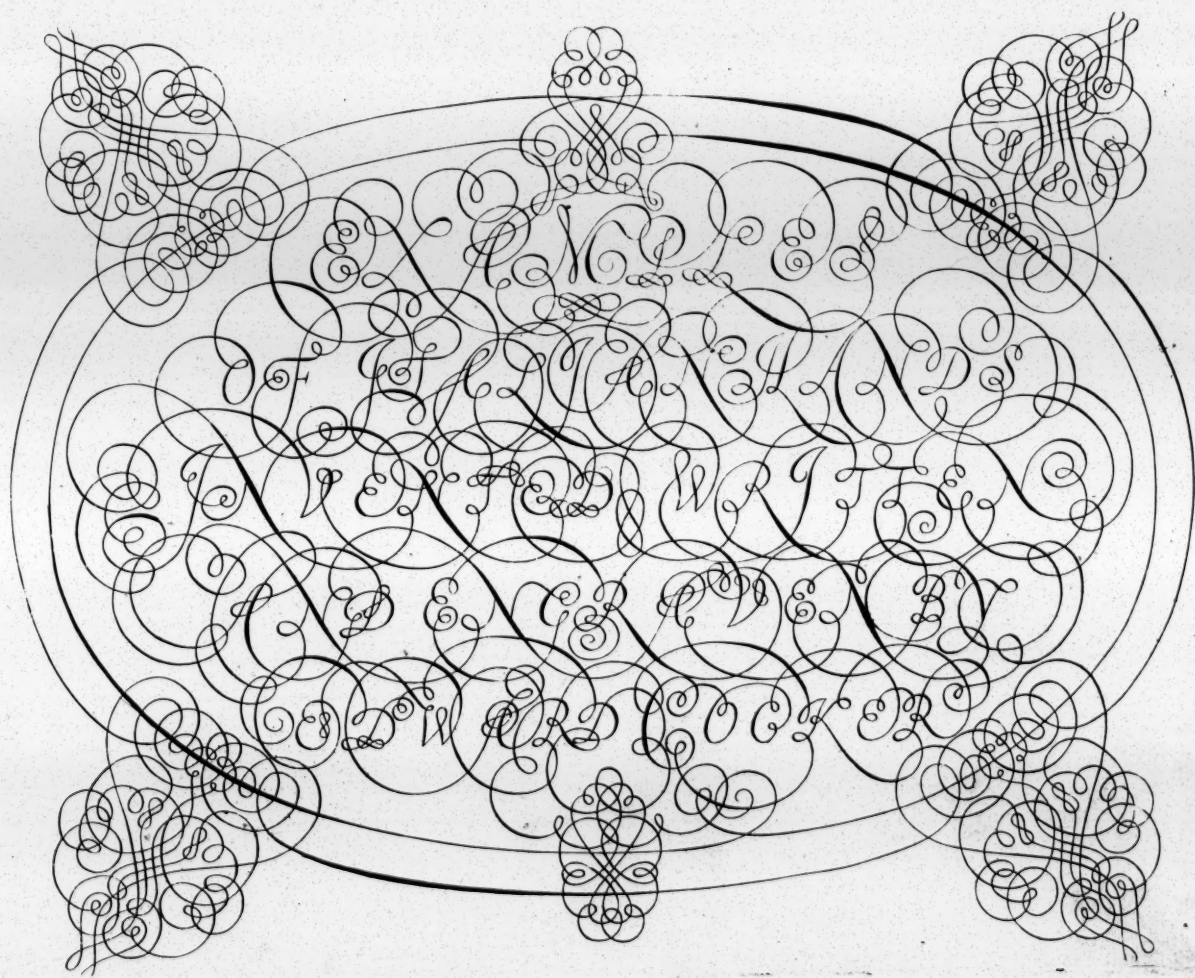 EXAMPLES
OF ITALIAN HANDS
INVENTED WRITEN
AND ENGRAVEN BY
EDWARD COCKER